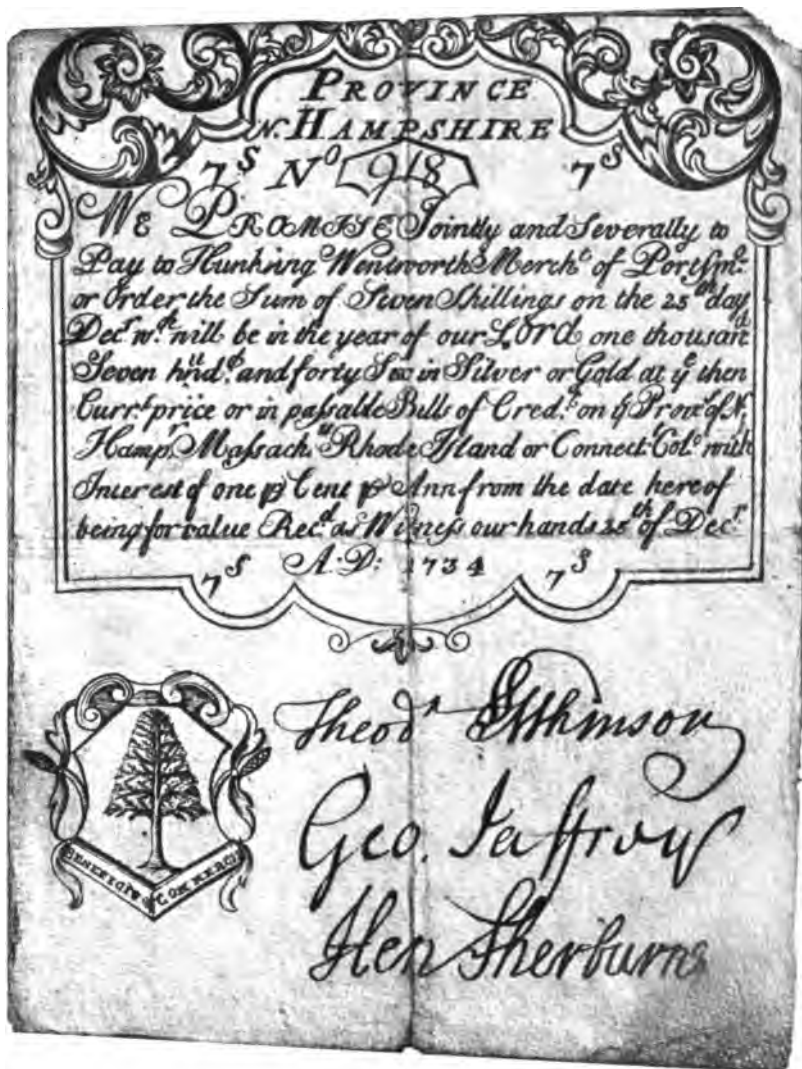 PROVINCE
N. HAMPSHIRE
7S No 918 7S
WE PROMISE Jointly and Severally to
Pay to Hunking Wentworth Mercht of Portsmo
or Order the Sum of Seven Shillings on the 25th day
Decr wch will be in the year of our LORD one thousand
Seven hund and forty Six in Silver or Gold at ye then
Currt price or in passable Bills of Credt on ye Prove of N.
Hampr Massachts Rhode Island or Connect Colo with
Interest of one ꝑ Cent ꝑ Ann from the date hereof
being for value Recd as Witness our hands 25th of Decr
7S A:D: 1734 7S
Theodr Atkinson
Geo. Jaffrey
Hen Sherburne
BENEFICIO COMMERCII